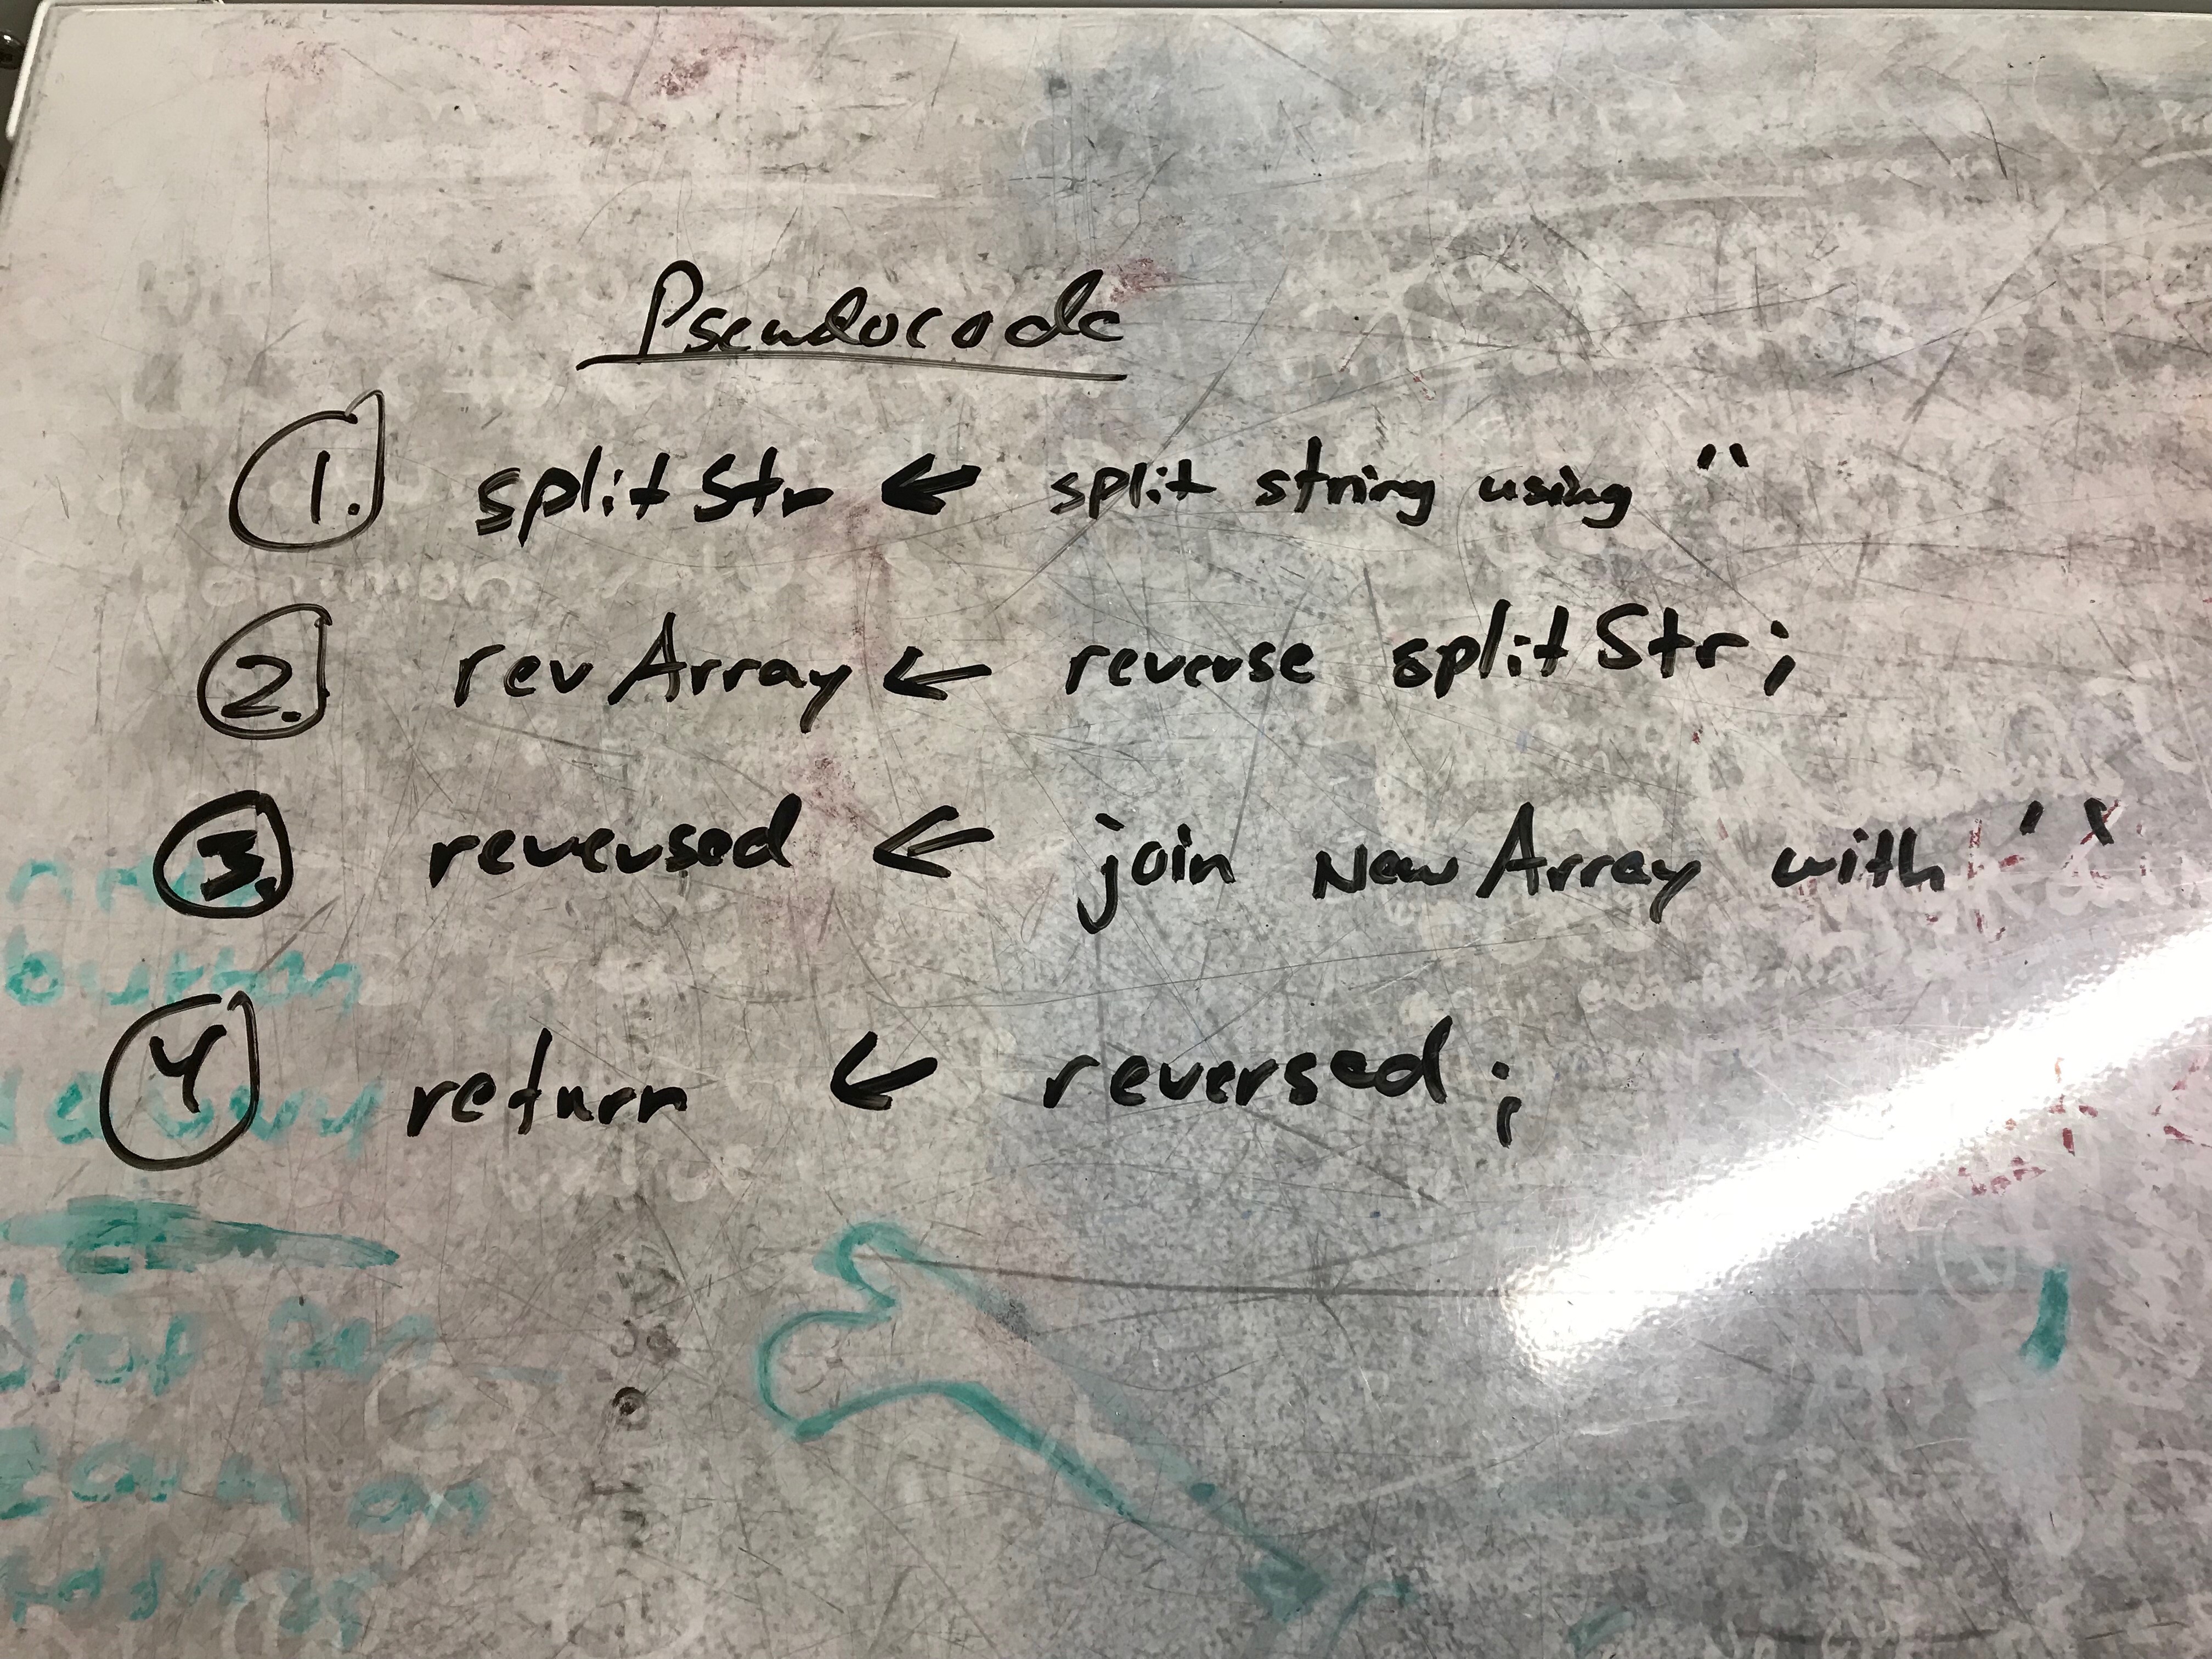 Pseudocode
1. splitStr ← split string using ''
2. revArray ← reverse splitStr;
3. reversed ← join NewArray with ' '
4 return ← reversed;
button